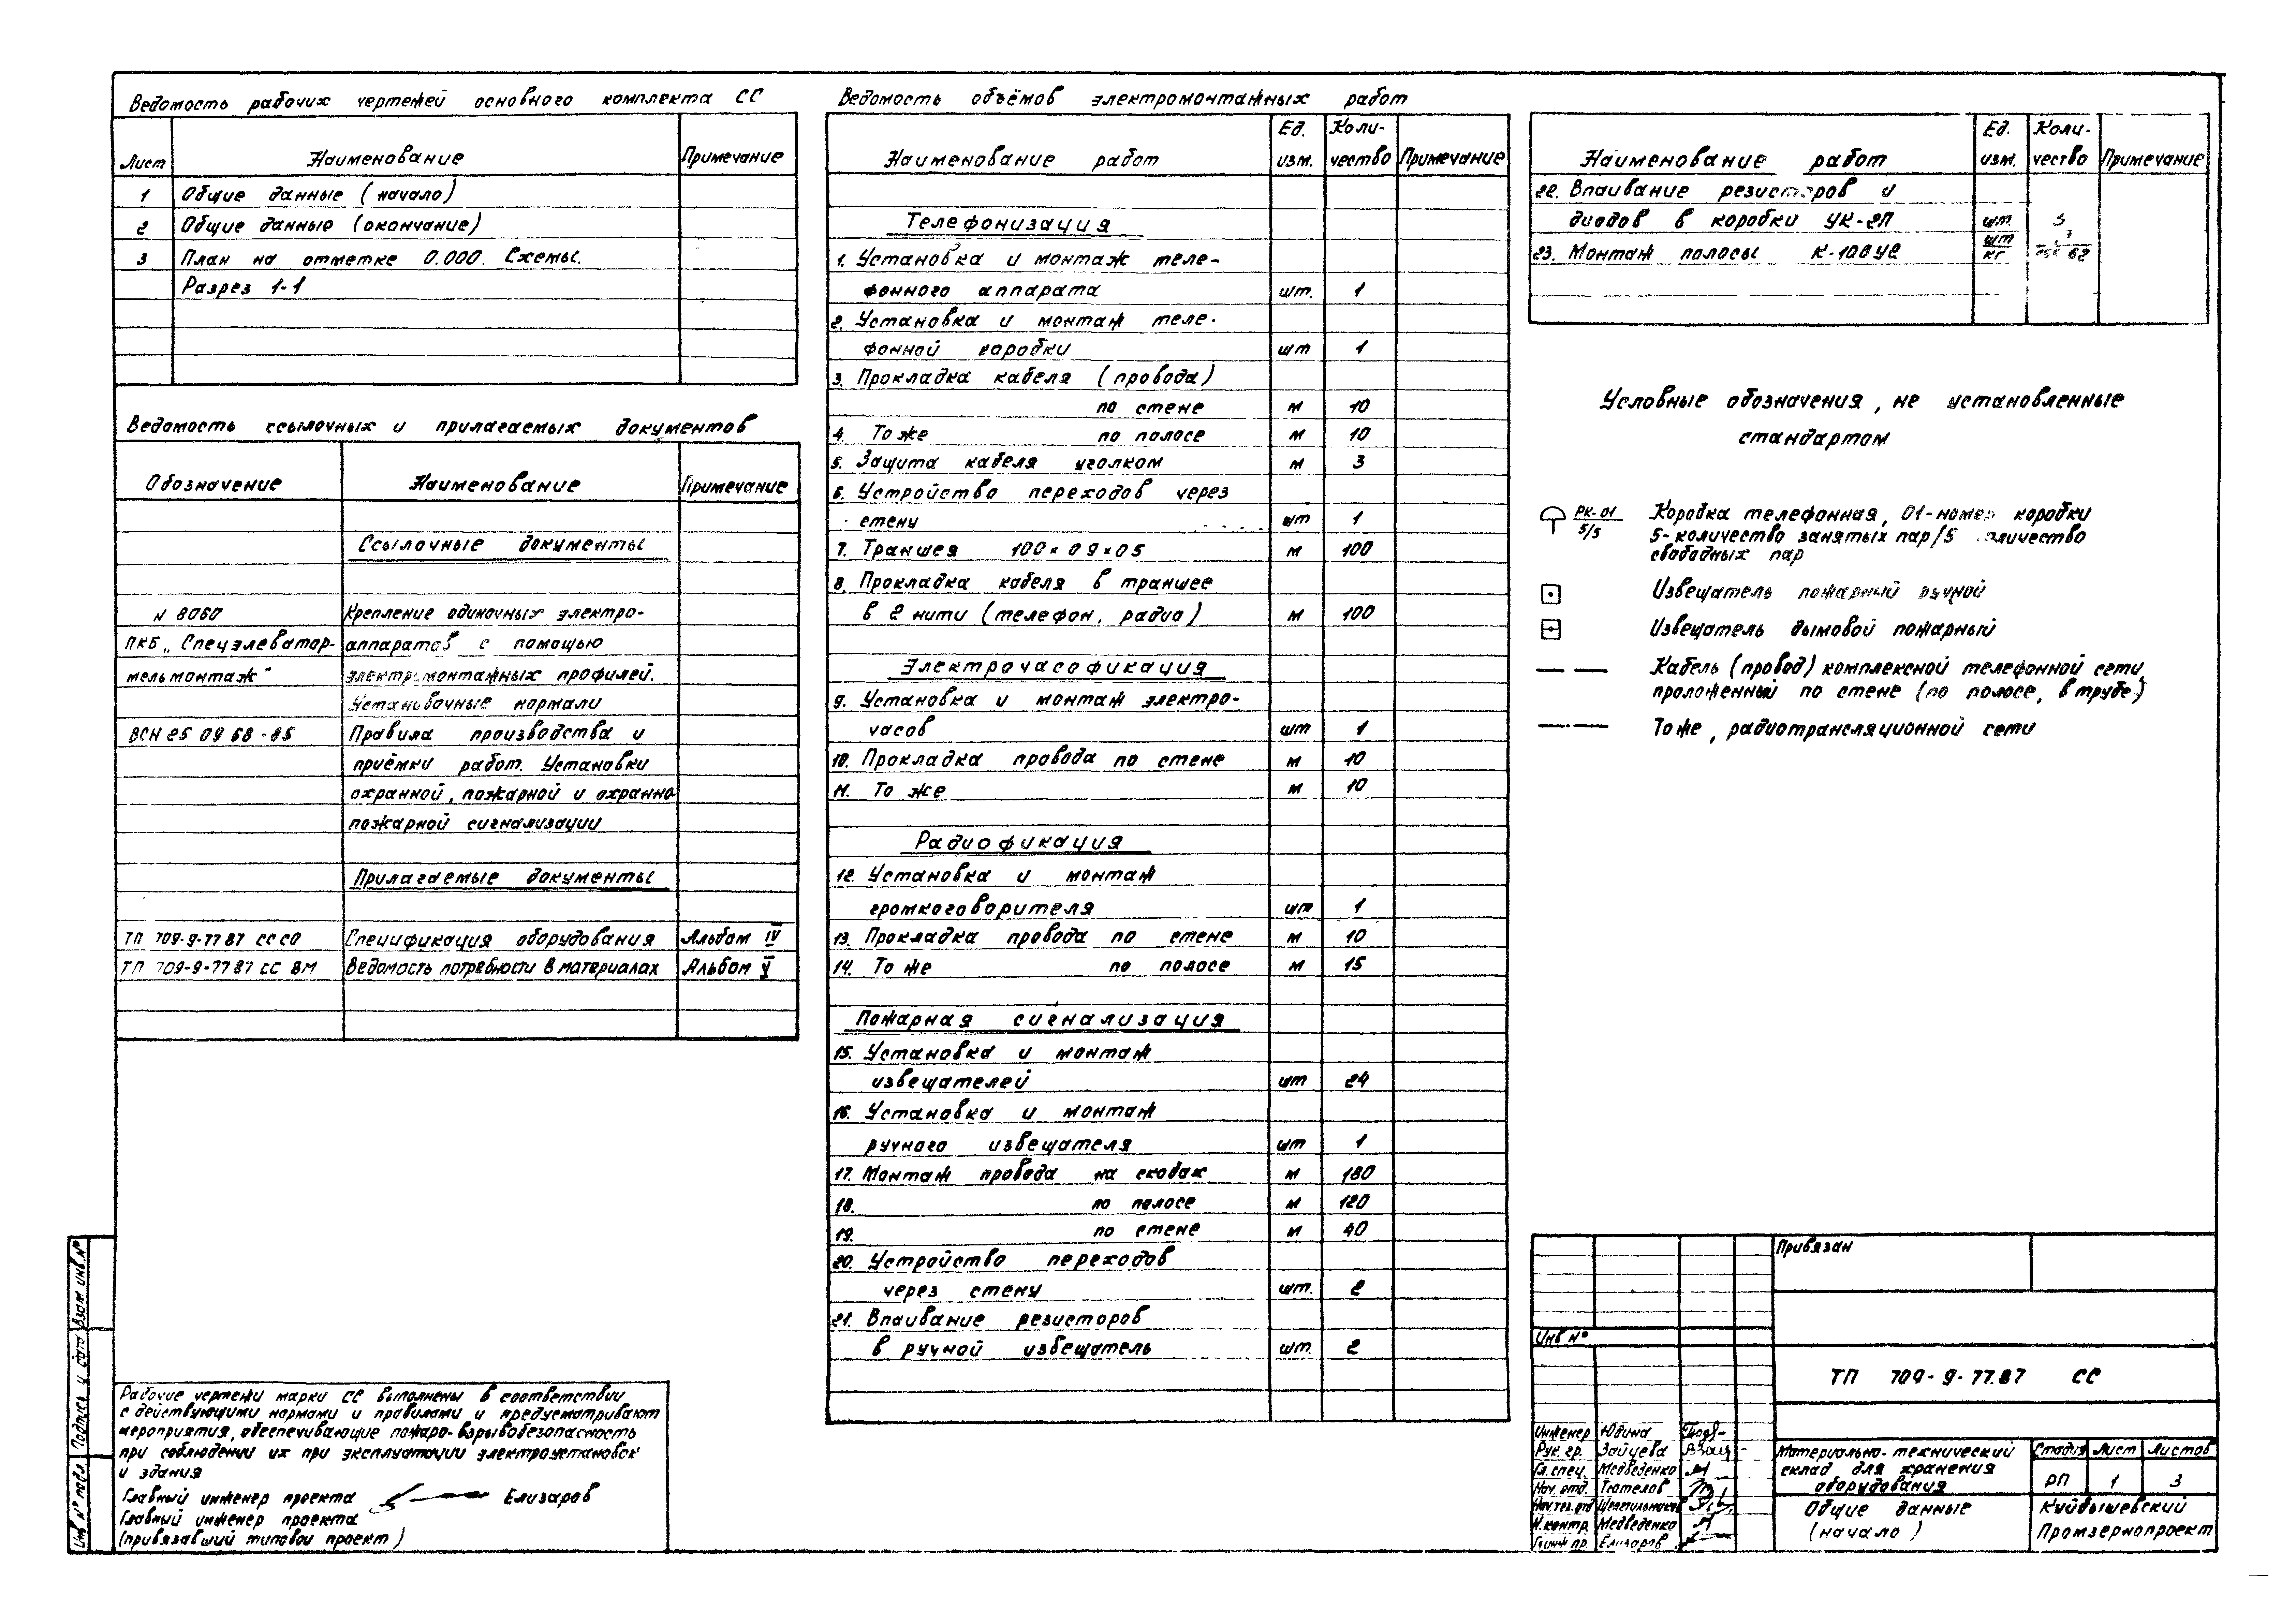 Ведомость рабочих чертежей основного комплекта СС
Лист Наименование Примечание
1 Общие данные (начало)
2 Общие данные (окончание)
3 План на отметке 0.000. Схемы.
Разрез 1-1
Ведомость ссылочных и прилагаемых документов
Обозначение Наименование Примечание
Ссылочные документы
N 8060 Крепление одиночных электро-
ПКБ „Спецэлеватор- аппаратов с помощью
мельмонтаж" электромонтажных профилей.
Установочные нормали
ВСН 25 09 68-85 Правила производства и
приёмки работ. Установки
охранной, пожарной и охранно
пожарной сигнализации
Прилагаемые документы
ТП 709-9-77 87 СС СО Спецификация оборудования Альбом IV
ТП 709-9-77 87 СС ВМ Ведомость потребности в материалах Альбом V
Рабочие чертежи марки СС выполнены в соответствии
с действующими нормами и правилами и предусматривают
мероприятия, обеспечивающие пожаро-взрывобезопасность
при соблюдении их при эксплуатации электроустановок
и здания
Главный инженер проекта Елизаров
Главный инженер проекта
(привязавший типовой проект)
Взам инв.N°
Подпись и дата
Инв N° подл
Ведомость объёмов электромонтажных работ
Наименование работ Ед. изм. Коли-чество Примечание
Телефонизация
1. Установка и монтаж теле-
фонного аппарата шт. 1
2. Установка и монтаж теле-
фонной коробки шт 1
3. Прокладка кабеля (провода)
по стене м 10
4. То же по полосе м 10
5. Защита кабеля уголком м 3
6. Устройство переходов через
стену шт 1
7. Траншея 100×0 9×0 5 м 100
8. Прокладка кабеля в траншее
в 2 нити (телефон, радио) м 100
Электрочасофикация
9. Установка и монтаж электро-
часов шт 1
10. Прокладка провода по стене м 10
11. То же м 10
Радиофикация
12. Установка и монтаж
громкоговорителя шт 1
13. Прокладка провода по стене м 10
14. То же по полосе м 15
Пожарная сигнализация
15. Установка и монтаж
извещателей шт 24
16. Установка и монтаж
ручного извещателя шт 1
17. Монтаж провода на скобах м 180
18. по полосе м 120
19. по стене м 40
20. Устройство переходов
через стену шт. 2
21. Впаивание резисторов
в ручной извещатель шт. 2
Наименование работ Ед. изм. Коли-чество Примечание
22. Впаивание резисторов и
диодов в коробки УК-2П шт. 3
23. Монтаж полосы К-108У2 шт кг
Условные обозначения, не установленные
стандартом
РК-01 5/5 Коробка телефонная, 01-номер коробки
5-количество занятых пар/5 количество
свободных пар
Извещатель пожарный ручной
Извещатель дымовой пожарный
Кабель (провод) комплексной телефонной сети,
проложенный по стене (по полосе, в трубе)
То же, радиотрансляционной сети
Привязан
Инв N°
ТП 709-9-77.87 СС
Инженер Юдина
Рук. гр. Зайцева
Гл. спец. Медведенко
Нач. отд. Тютелов
Н.контр. Медведенко
Елизаров
Материально-технический
склад для хранения
оборудования
Стадия Лист Листов
РП 1 3
Общие данные
(начало)
Куйбышевский
Промзернопроект